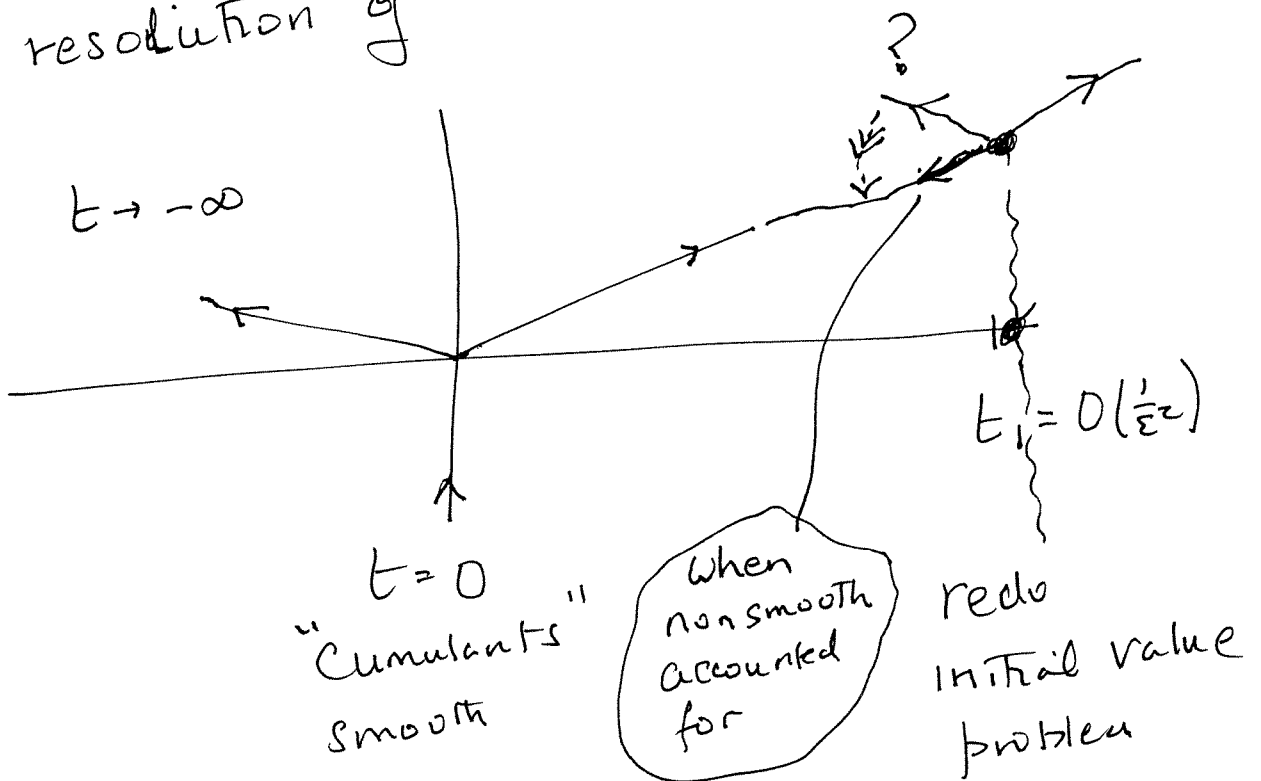 resolution of
?
t → -∞
t₁ = O(1/ε²)
t = 0
"Cumulants"
smooth
When
nonsmooth
accounted
for
redo
initial value
problem